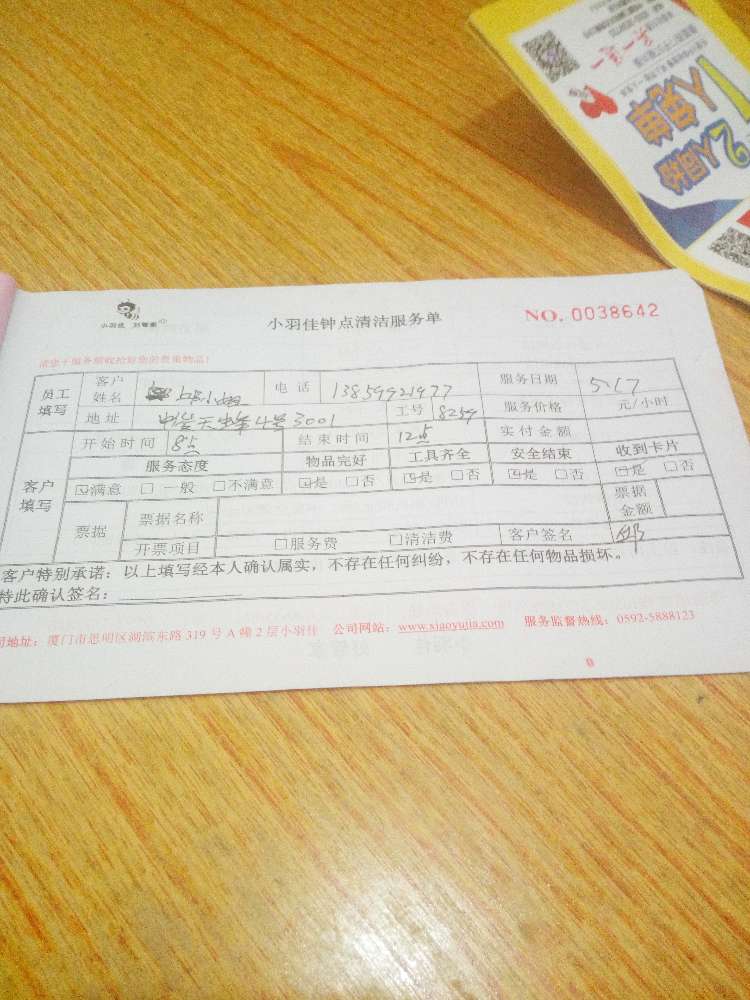 一客一卡
人同洽
小羽佳 刘管家
小羽佳钟点清洁服务单
NO. 0038642
请您于服务前收拾好您的贵重物品!
员工填写 客户姓名 小姐 电话 13859921977 服务日期 5/17
地址 4号3001 工号 8259 服务价格 元/小时
客户填写 开始时间 8点 结束时间 12点 实付金额
服务态度 物品完好 工具齐全 安全结束 收到卡片
☑满意 □一般 □不满意 ☑是 □否 ☑是 □否 ☑是 □否 ☑是 □否
票据 票据名称 票据金额
开票项目 □服务费 □清洁费 客户签名
客户特别承诺:以上填写经本人确认属实,不存在任何纠纷,不存在任何物品损坏。
特此确认签名:
司地址:厦门市思明区湖滨东路 319 号 A 幢 2 层小羽佳 公司网站:www.xiaoyujia.com 服务监督热线:0592-5888123